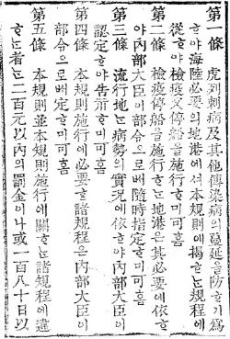 第一條 虎列刺病及其他傳染病의蔓延을防ᄒᆞ기爲
ᄒᆞ야海陸必要의地港에셔本規則에揭ᄒᆞᄂᆞᆫ規程에
從ᄒᆞ야檢疫又停船을施行ᄒᆞ미可홈
第二條 檢疫停船을施行ᄒᆞᄂᆞᆫ地港은其必要에依ᄒᆞ
야內部大臣이部令으로ᄡᅥ隨時指定ᄒᆞ미可홈
第三條 流行地ᄂᆞᆫ病勢의實況에依ᄒᆞ야內部大臣이
認定ᄒᆞ야告示ᄒᆞ미可홈
第四條 本規則施行에必要ᄒᆞᆫ諸規程은內部大臣이
部令으로ᄡᅥ定ᄒᆞ미可홈
第五條 本規則並本規則施行에關ᄒᆞᄂᆞᆫ諸規程에違
ᄒᆞᄂᆞᆫ者ᄂᆞᆫ二百元以內의罰金이나或一百八十日以